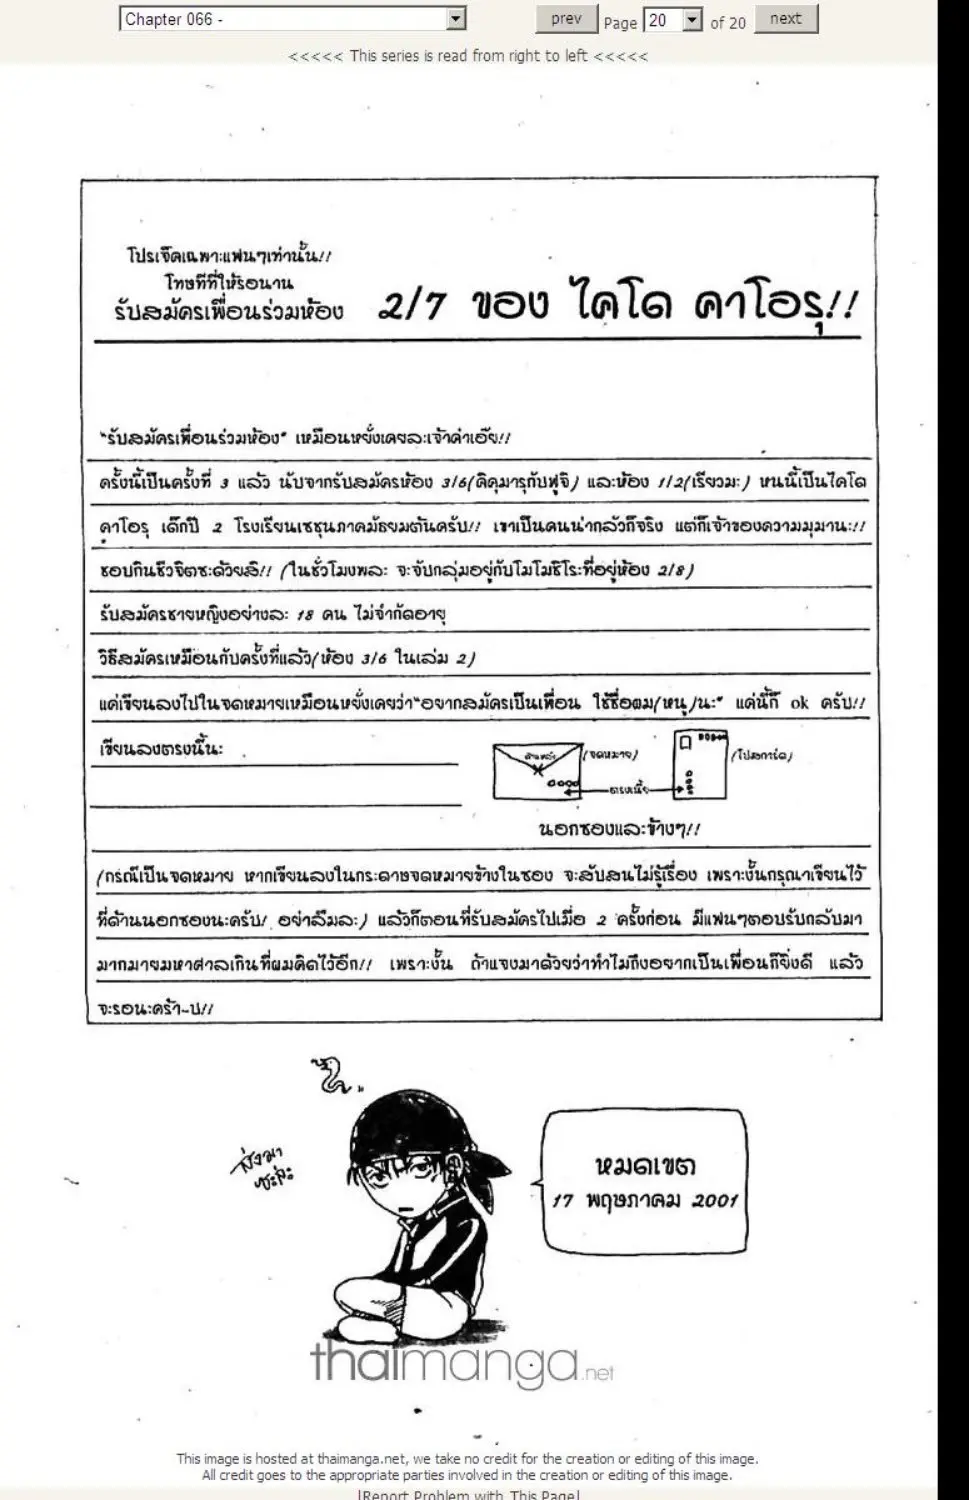 Chapter 066 -
prev Page 20 of 20 next
<<<<< This series is read from right to left <<<<<
โปรเจ็คเฉพาะแฟนๆเท่านั้น!!
โทษทีที่ให้รอนาน
รับสมัครเพื่อนร่วมห้อง 2/7 ของ ไคโด คาโอรุ!!
"รับสมัครเพื่อนร่วมห้อง" เหมือนหยั่งเคยละเจ้าค่าเอ๊ย!!
ครั้งนี้เป็นครั้งที่ 3 แล้ว นับจากรับสมัครห้อง 3/6(คิคุมารุกับฟูจิ) และห้อง 1/2(เรียวมะ) หนนี้เป็นไคโด
คาโอรุ เด็กปี 2 โรงเรียนเซชุนภาคมัธยมต้นครับ!! เขาเป็นคนน่ากลัวก็จริง แต่ก็เจ้าของความมุมานะ!!
ชอบกินชีวจิตซะด้วยสิ!! (ในชั่วโมงพละ จะจับกลุ่มอยู่กับโมโมชิโระที่อยู่ห้อง 2/8)
รับสมัครชายหญิงอย่างละ 18 คน ไม่จำกัดอายุ
วิธีสมัครเหมือนกับครั้งที่แล้ว(ห้อง 3/6 ในเล่ม 2)
แค่เขียนลงไปในจดหมายเหมือนหยั่งเคยว่า"อยากสมัครเป็นเพื่อน ใช้ชื่อผม(หนู)นะ" แค่นี้ก็ ok ครับ!!
เขียนลงตรงนี้นะ
(จดหมาย) (โปสการ์ด)
ตรงเนี้ย
นอกซองและข้างๆ!!
(กรณีเป็นจดหมาย หากเขียนลงในกระดาษจดหมายข้างในซอง จะสับสนไม่รู้เรื่อง เพราะงั้นกรุณาเขียนไว้
ที่ด้านนอกซองนะครับ! อย่าลืมละ) แล้วก็ตอนที่รับสมัครไปเมื่อ 2 ครั้งก่อน มีแฟนๆตอบรับกลับมา
มากมายมหาศาลเกินที่ผมคิดไว้อีก!! เพราะงั้น ถ้าแจงมาด้วยว่าทำไมถึงอยากเป็นเพื่อนก็ยิ่งดี แล้ว
จะรอนะคร้า~บ!!
ส่งมา
ซะสิ
หมดเขต
17 พฤษภาคม 2001
thaimanga.net
This image is hosted at thaimanga.net, we take no credit for the creation or editing of this image.
All credit goes to the appropriate parties involved in the creation or editing of this image.
[Report Problem with This Page]